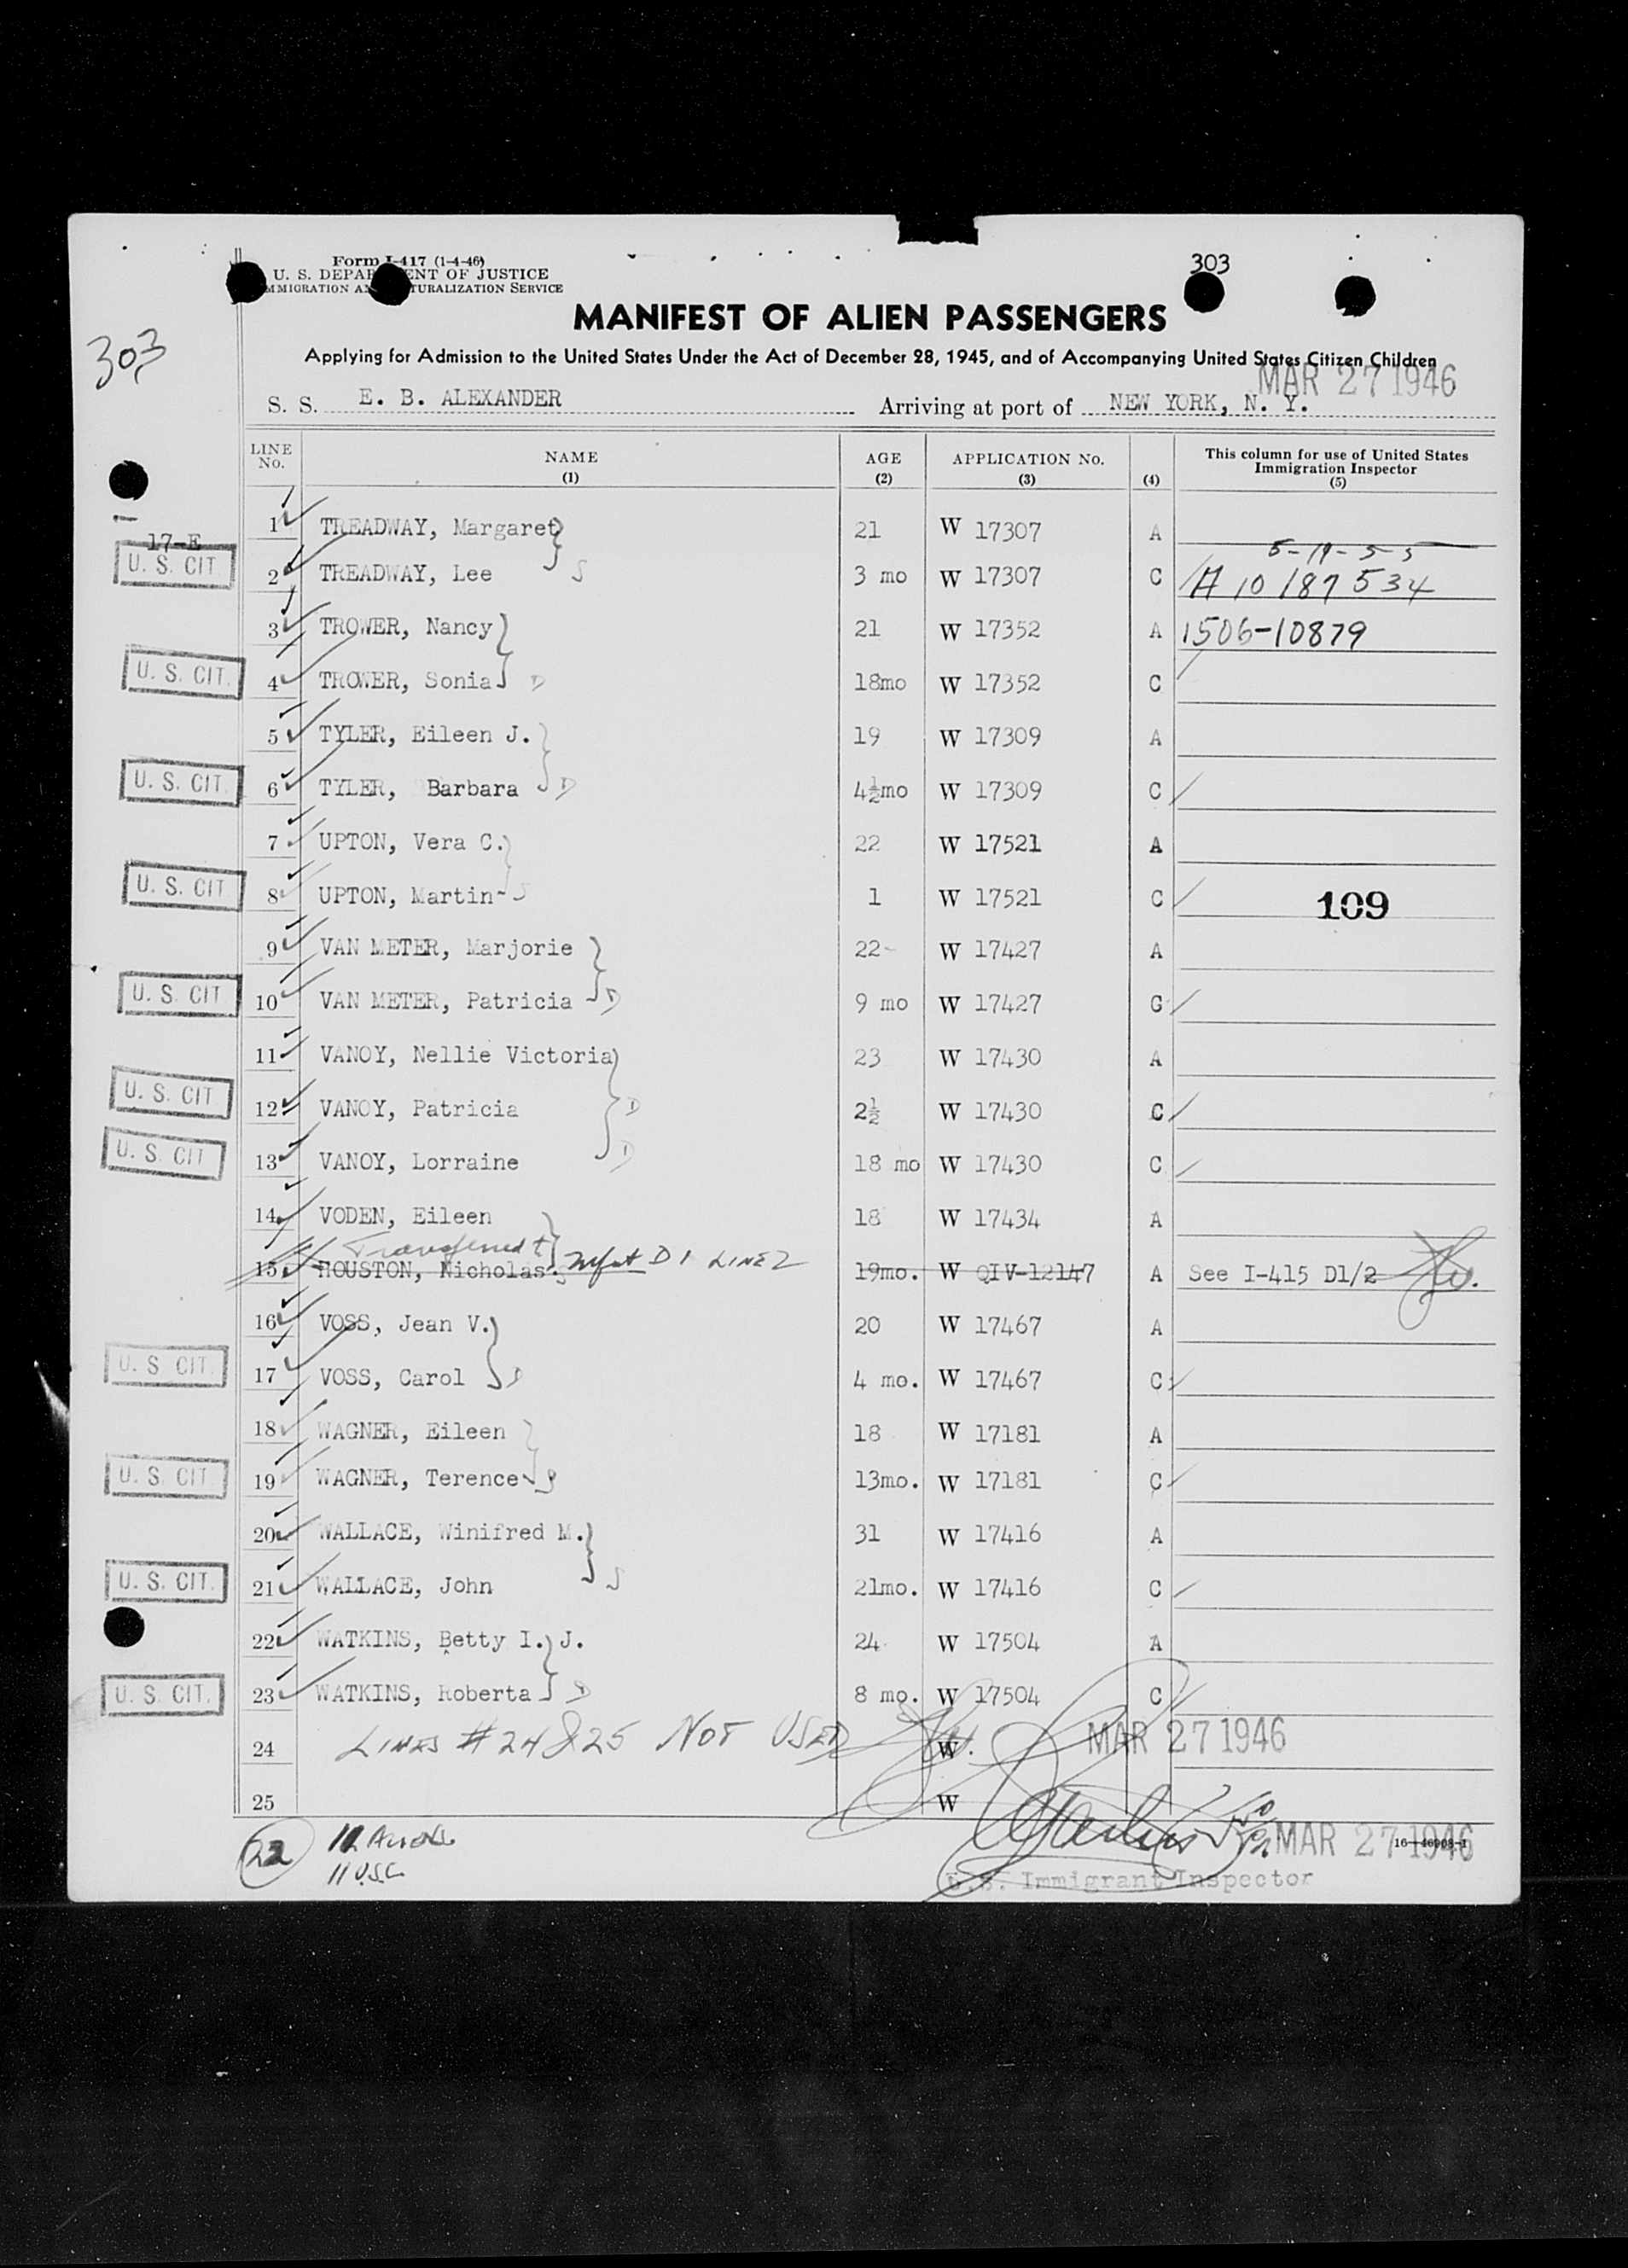 Form I-417 (1-4-46)
U. S. DEPARTMENT OF JUSTICE
IMMIGRATION AND NATURALIZATION SERVICE
303
303
MANIFEST OF ALIEN PASSENGERS
Applying for Admission to the United States Under the Act of December 28, 1945, and of Accompanying United States Citizen Children
MAR 27 1946
S. S. E. B. ALEXANDER Arriving at port of NEW YORK, N. Y.
LINE No. NAME (1) AGE (2) APPLICATION No. (3) (4) This column for use of United States Immigration Inspector (5)
1 TREADWAY, Margaret 21 W 17307 A
17-E 5-19-55
U. S. CIT 2 TREADWAY, Lee S 3 mo W 17307 C A 10 187 534
3 TROWER, Nancy 21 W 17352 A 1506-10879
U. S. CIT. 4 TROWER, Sonia D 18mo W 17352 C
5 TYLER, Eileen J. 19 W 17309 A
U. S. CIT 6 TYLER, Barbara D 4½mo W 17309 C
7 UPTON, Vera C. 22 W 17521 A
U. S. CIT 8 UPTON, Martin S 1 W 17521 C 109
9 VAN METER, Marjorie 22 W 17427 A
U. S. CIT 10 VAN METER, Patricia D 9 mo W 17427 C
11 VANOY, Nellie Victoria 23 W 17430 A
U. S. CIT 12 VANOY, Patricia D 2½ W 17430 C
U. S. CIT 13 VANOY, Lorraine D 18 mo W 17430 C
14 VODEN, Eileen 18 W 17434 A
Transferred to
15 HOUSTON, Nicholas S Mfst D1 LINE 2 19mo. W QIV-12147 A See I-415 D1/2
16 VOSS, Jean V. 20 W 17467 A
U. S. CIT. 17 VOSS, Carol D 4 mo. W 17467 C
18 WAGNER, Eileen 18 W 17181 A
U. S. CIT 19 WAGNER, Terence S 13mo. W 17181 C
20 WALLACE, Winifred M. 31 W 17416 A
U. S. CIT. 21 WALLACE, John S 21mo. W 17416 C
22 WATKINS, Betty I. J. 24 W 17504 A
U. S. CIT. 23 WATKINS, Roberta D 8 mo. W 17504 C
24 LINES #24 & 25 NOT USED W MAR 27 1946
25 W
22 11 Aliens
11 USC
MAR 27 1946
16-46908-1
U.S. Immigrant Inspector